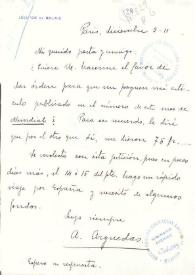 LEGATION DE BOLIVIE
Paris, diciembre 3-11
Mi querido poeta y amigo:
¿Quiere Ud. hacerme el favor de
dar órden para que me paguen mi artí-
culo publicado en el número de este mes de
Mundial? Para su recuerdo, le diré
que por el otro que dí, me dieron 75 fr.
Le molesto con esta petición, pues en pocos
días más, el 14 ó 15 del pte. hago un rápido
viaje por España y necesito de algunos
fondos.
Suyo siempre
A. Arguedas
Espero su respuesta.